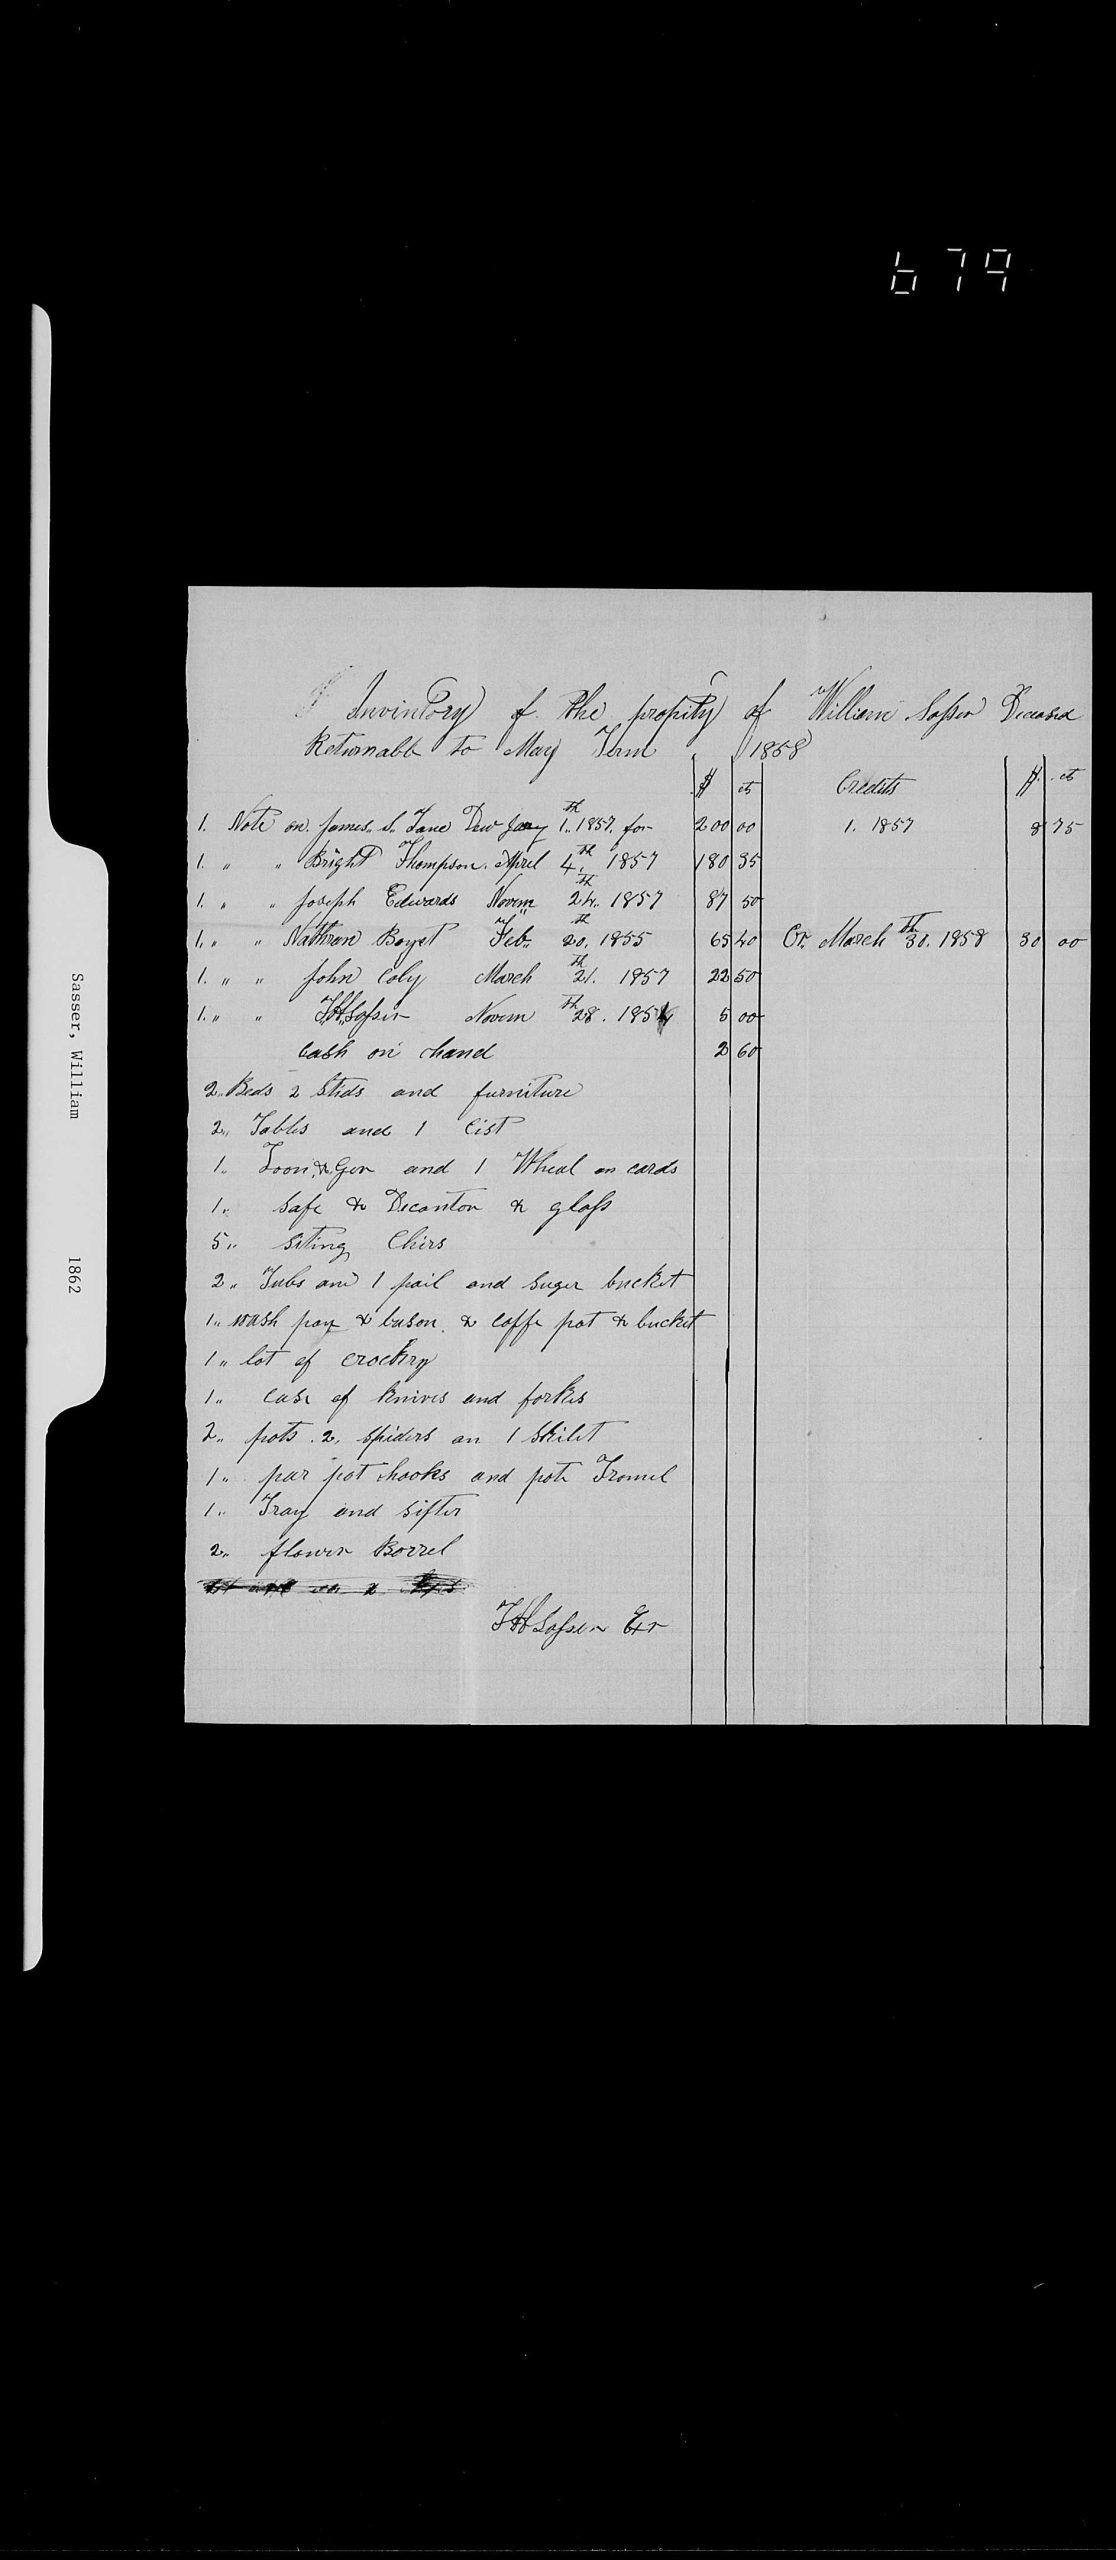 679
Inventory of the propity of William Sasser Deceased
Returnabl to May Term 1858
$ cts Credits $ cts
1. Note on James. S. Lane Dew Jary 1.th 1857. for 200 00 1. 1857 8 75
1. " " Bright Thompson. Aprel 4.th 1857 180 35
1. " " Joseph Edwards Novem 24.th 1857 87 50
1. " " Nathran Boyet Feb. 20.th 1855 65 40 Cr. March 30.th 1858 30 00
1. " " John Coly March 21.th 1857 22 50
1. " " Sasser Novem 28.th 185 5 00
Cash on hand 2 60
2 " Beds 2 Stids and furniture
2 " Tables and 1 Cist
1 " Loom & Ger and 1 Wheal an cards
1 " Safe & Decanton & glass
5 " Siting Chirs
2 " Tubs and 1 pail and Suger bucket
1 " wash pan & bason & coffe pot & bucket
1 " lot of crockry
1 " case of knives and forkes
2 " pots 2 spiders an 1 Skilet
1 " par pot hooks and pote Tromel
1 " Tray and sifter
2 " flower Borrel
Sasser Exr
Sasser, William 1862